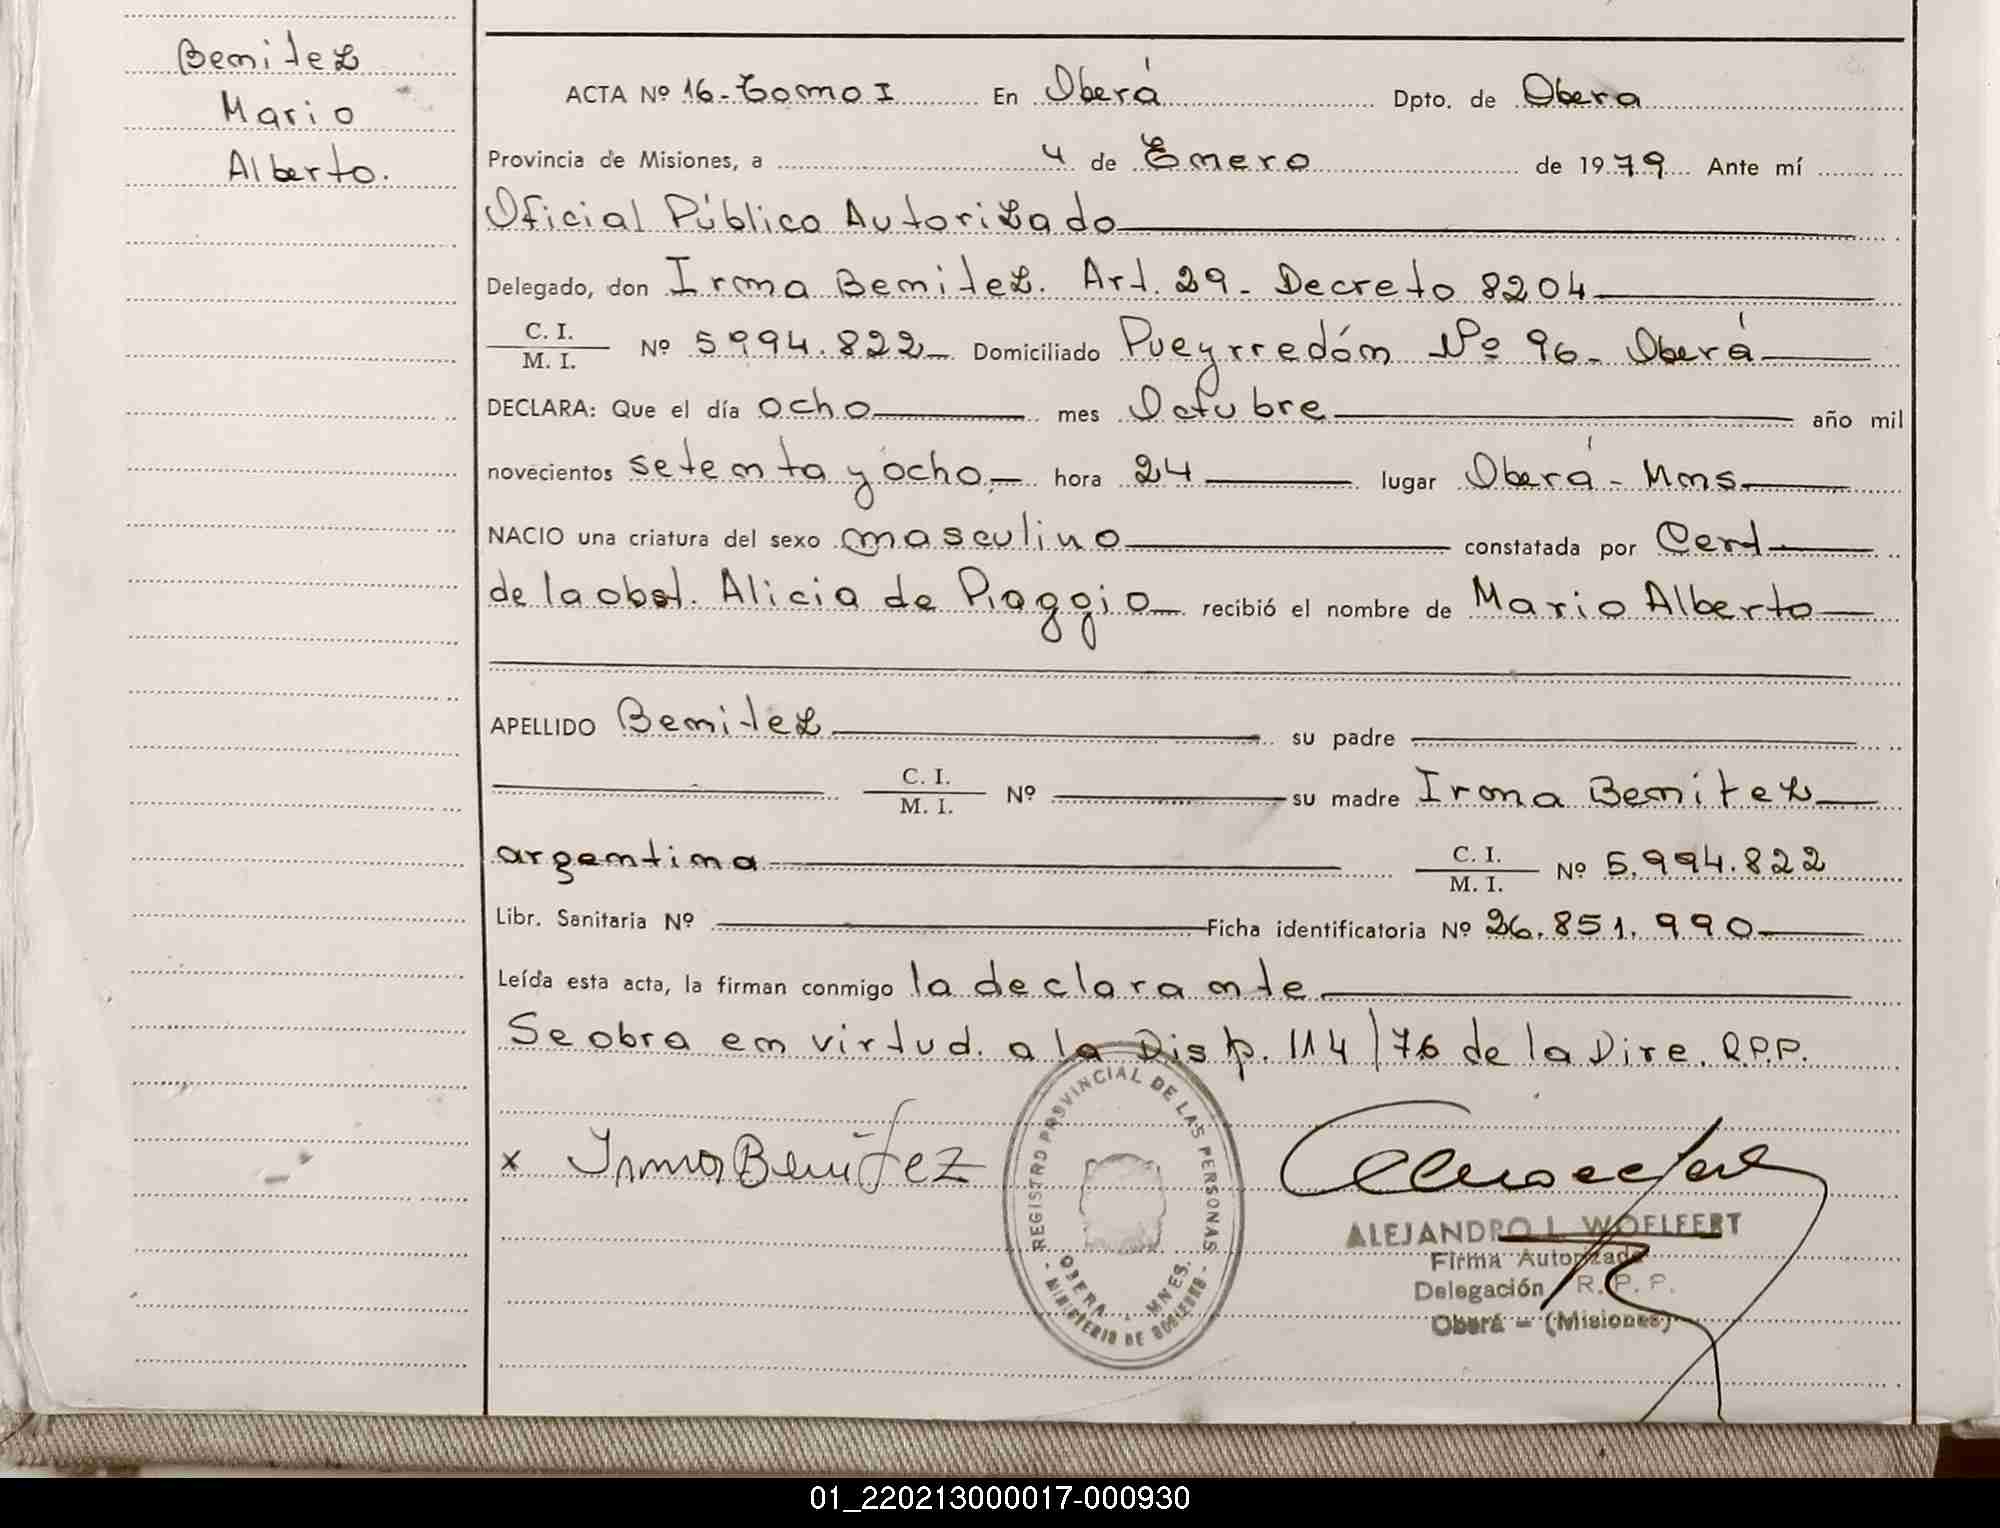 Benitez
Mario
Alberto.
ACTA Nº 16-Tomo I En Oberá Dpto. de Obera
Provincia de Misiones, a 4 de Enero de 1979 Ante mí
Oficial Público Autorizado
Delegado, don Irma Benitez. Art. 29- Decreto 8204
C. I.
M. I. Nº 5994.822 Domiciliado Pueyrredón Nº 96- Oberá
DECLARA: Que el día ocho mes Octubre año mil
novecientos setenta y ocho hora 24 lugar Oberá - Mnes
NACIO una criatura del sexo masculino constatada por Cert
de la obst. Alicia de Piaggio recibió el nombre de Mario Alberto
APELLIDO Benitez su padre
C. I.
M. I. Nº su madre Irma Benitez
argentina C. I.
M. I. Nº 5.994.822
Libr. Sanitaria Nº Ficha identificatoria Nº 26.851.990
Leída esta acta, la firman conmigo la declarante
Se obra en virtud. a la Disp. 114/76 de la Dire. R.P.P.
x Irma Benitez
REGISTRO PROVINCIAL DE LAS PERSONAS
OBERA - MNES.
- MINISTERIO DE GOBIERNO -
ALEJANDRO L. WOELFERT
Firma Autorizada
Delegación R. P. P.
Oberá - (Misiones)
01_220213000017-000930